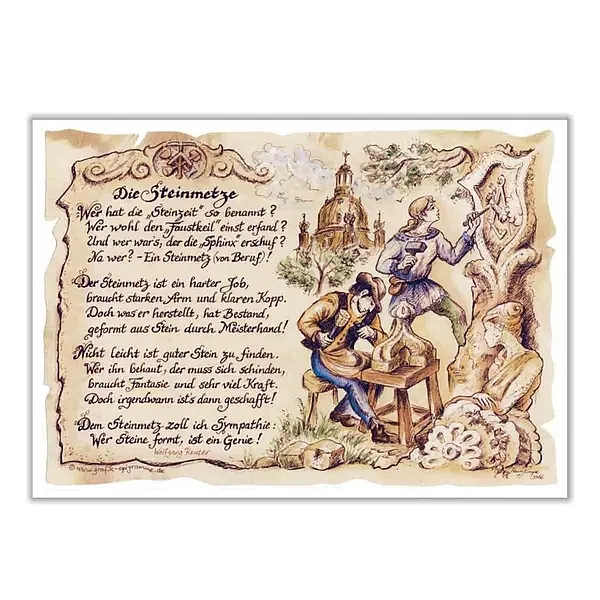 Die Steinmetze
Wer hat die „Steinzeit" so benannt?
Wer wohl den „Faustkeil" einst erfand?
Und wer war's, der die „Sphinx" erschuf?
Na wer? - Ein Steinmetz (von Beruf)!
Der Steinmetz ist ein harter Job,
braucht starken Arm und klaren Kopp.
Doch was er herstellt, hat Bestand,
geformt aus Stein durch Meisterhand!
Nicht leicht ist guter Stein zu finden.
Wer ihn behaut, der muss sich schinden,
braucht Fantasie und sehr viel Kraft.
Doch irgendwann ist's dann geschafft!
Dem Steinmetz zoll ich Sympathie:
Wer Steine formt, ist ein Genie!
Wolfgang Reuter
© www.grafik-epigramme.de